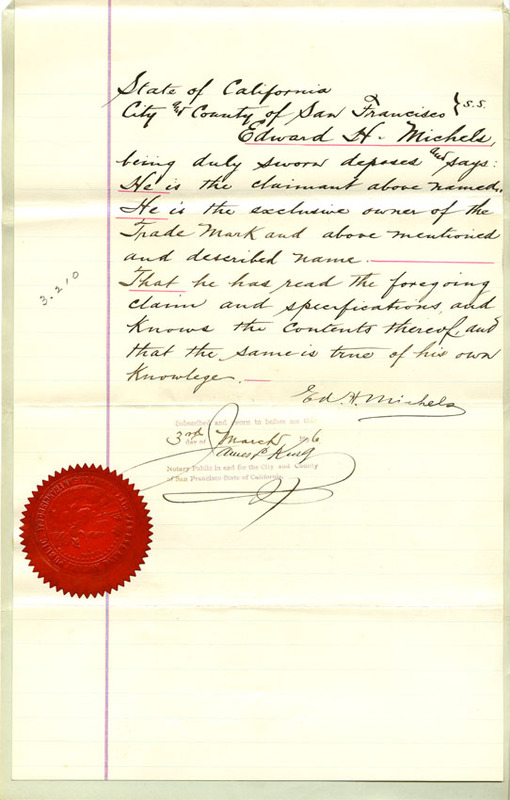 State of California
City and County of San Francisco } S.S.
Edward H. Michels,
being duly sworn deposes and says:
He is the claimant above named.
He is the exclusive owner of the
Trade Mark and above mentioned
and described name.
That he has read the foregoing
claim and specifications, and
Knows the Contents thereof, and
that the same is true of his own
Knowlege.
3.210
Ed. H. Michels
Subscribed and sworn to before me this
3rd day of March
James
Notary Public in and for the City and County
of San Francisco State of California